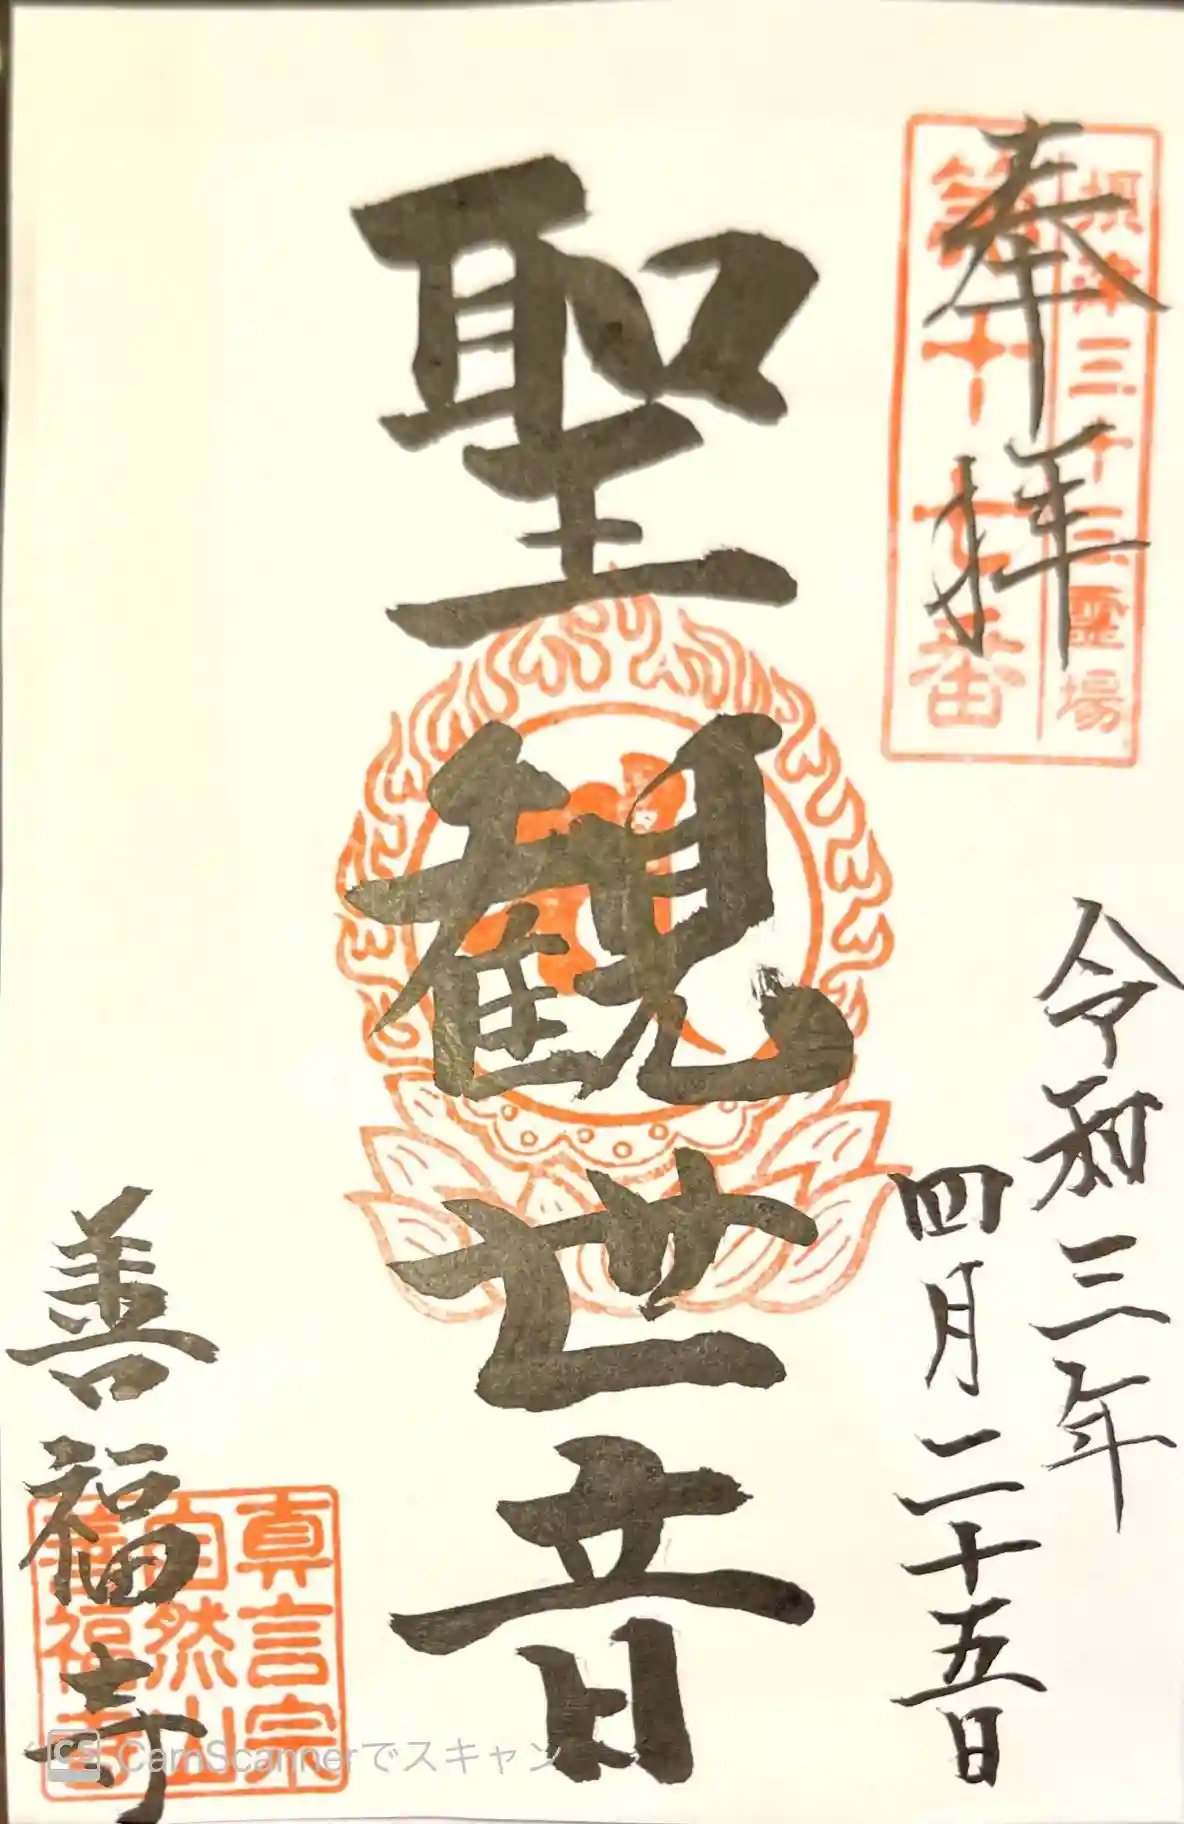 奉拝
摂津三十三霊場
第十七番
令和三年
四月二十五日
聖観世音
善福寺
真言宗
自然山
善福寺
CamScannerでスキャン